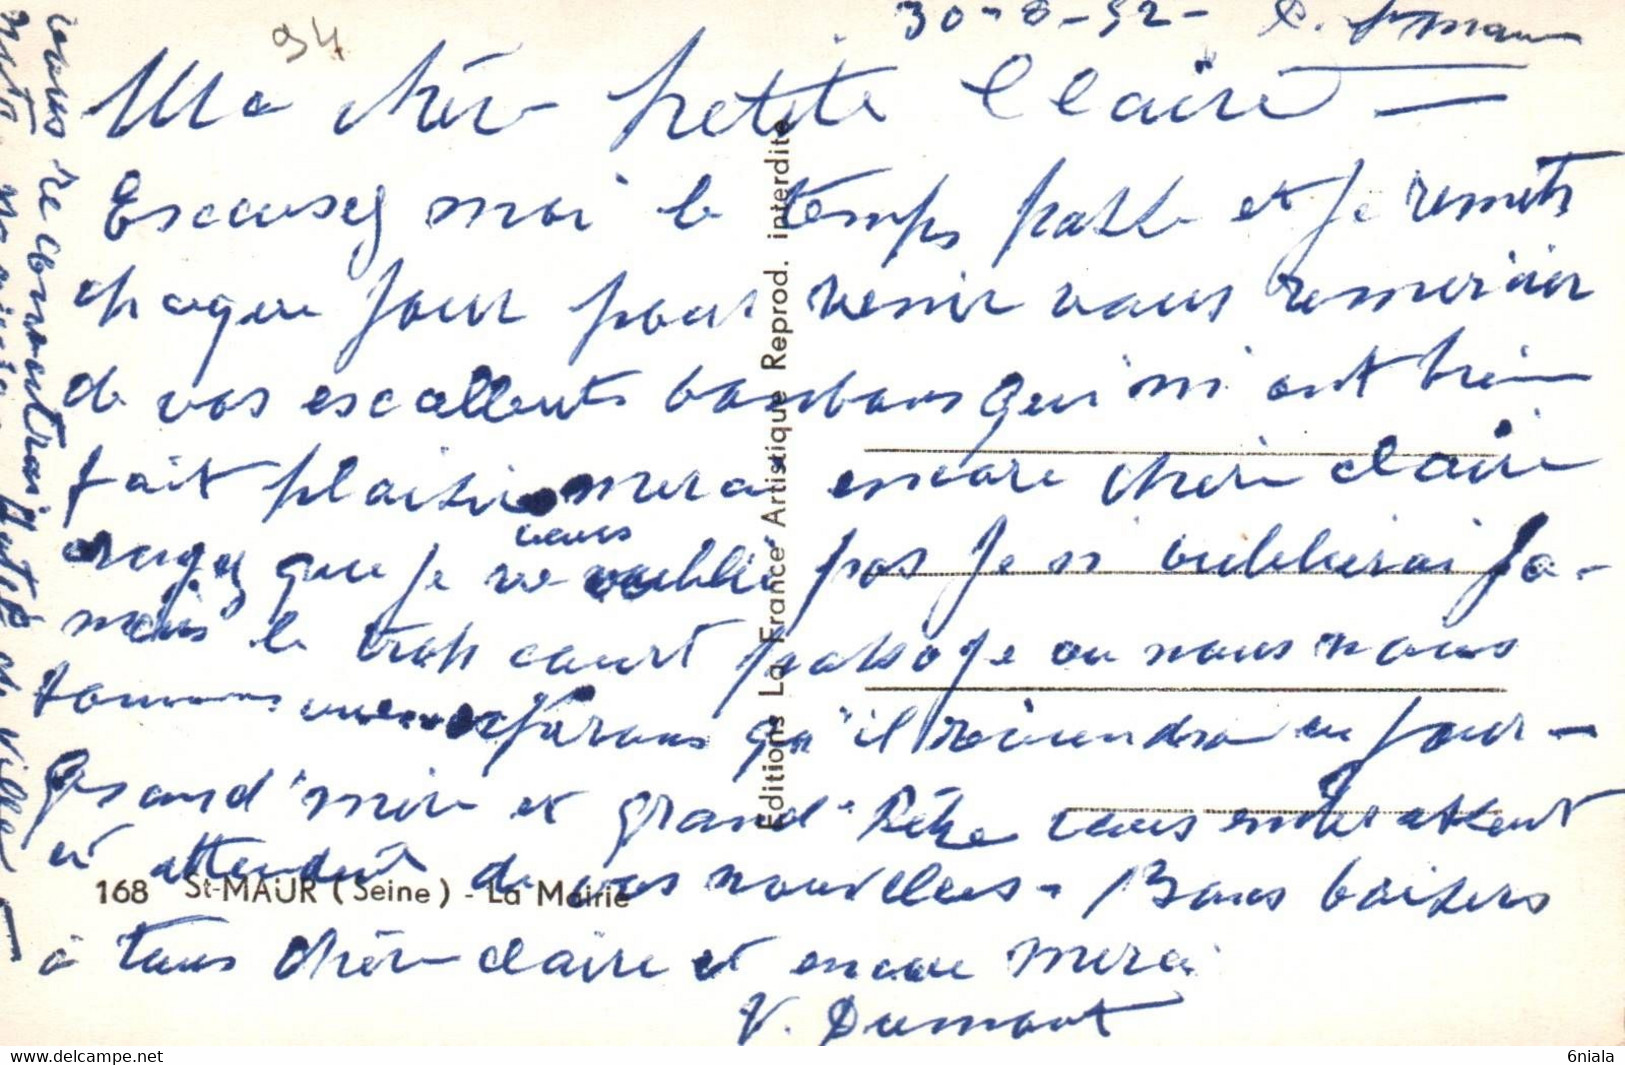 94
30-8-52- St Maur
Ma chère petite Claire —
Escusez moi le temps passe et je remets
chaque jour pour venir vous remercier
de vos escellents bonbons qui m'ont bien
fait plaisir merci encore chère Claire
croyez que je ne vous oublie pas je n'oublierai ja-
mais le trop court passage ou nous nous
sommes vue esperons qu'il reviendra un jour -
Grand'mère et grand-Père vous embrassent
et attendent de vos nouvelles - Bons baisers
à tous chère Claire et encore merci
V. Dumont
vous reconnaitrais
notre mairie hotel de ville
Editions La France Artistique Reprod. interdite
168 St-MAUR (Seine) - La Mairie
6niala